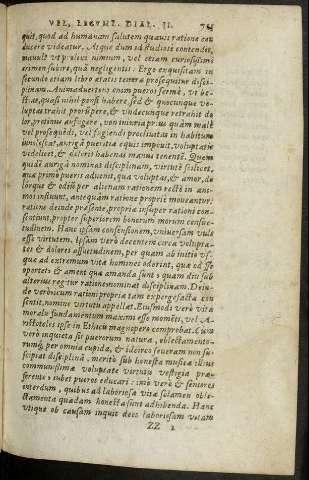 VEL, LEGVMT. DIAL. II.
quit, quod ad humanam salutem quauis ratione con
ducere videatur. Atque dum id studiosè contendit,
mauult vt proliæus nimium, vel etiam curiosissimus
erimen subire, quā negligentis. Ergo exquisitam in
secundo etiam libro ætatis teneræ prosequitur disci-
plinam. Animaduertens enim pueros fermè, vt be-
stias, quasi nihil pensi habere, sed & quocunque vo-
luptas trahit prorūpere, & vndecunque retrahit do
lor, protinus aufugere, non iniuria prius quàm malè
vel prosequēdi, vel fugiendi procliuitas in habitum
inolescat, aurigā pueritiæ equis imposuit, voluptatis
videlicet, & doloris habenas manu tenentē. Quem
quidē aurigā nominat disciplinam, virtutē scilicet,
quæ primò pueris aduenit, quā voluptas, & amor, do
lorque & odiū per alienam rationem rectè in ani-
mos influunt, antequàm ratione propriè moueantur:
ratione deinde præsente, propria insuper rationi con-
sentiunt, propter superiorem bonorum morum consue-
tudinem. Hanc ipsam consensionem, vniuersam vult
esse virtutem. Ipsam verò decentem circa volupta-
tes & dolores assuetudinem, per quam ab initio vs-
que ad extremum vitæ homines oderint, quæ od sse
oportet: & ament quæ amanda sunt: quàm diu sub
alterius regitur ratione nominat disciplinam. Dein-
de verò cùm rationi propria tam expergefacta con
sentit, nomine virtutis appellat. Eiusmodi verò vitæ
moralis fundamentum maximi esse momēti, vel A-
ristoteles ipse in Ethicis magnopere comprobat. Cùm
verò inquieta sit puerorum natura, oblectamento-
rumq́; per omnia cupida, & idcirco seueram non su-
scipiat disciplinā, meritò sub honesta musicæ illius
communissimæ voluptate virtutis vestigia præ-
ferente: iubet pueros educari: imò verò & seniores
interdum, quibus ad laboriosæ vitæ solamen oble-
ctamenta quædam honesta sunt adhibenda. Hanc
vtique ob causam inquit deos laboriosam vitam
ZZ 2